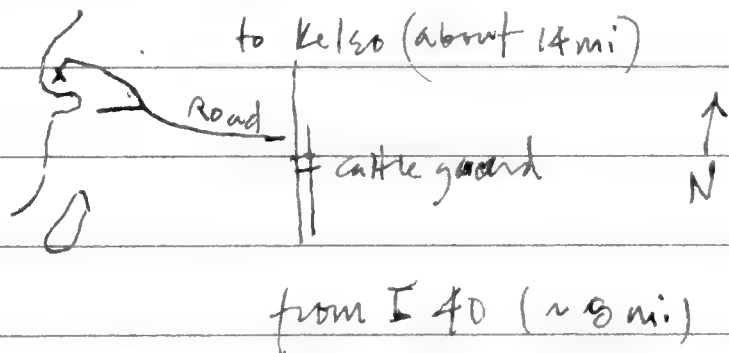 to Kelso (about 14 mi)
Road
cattle guard
N
from I 40 (~ 8 mi)